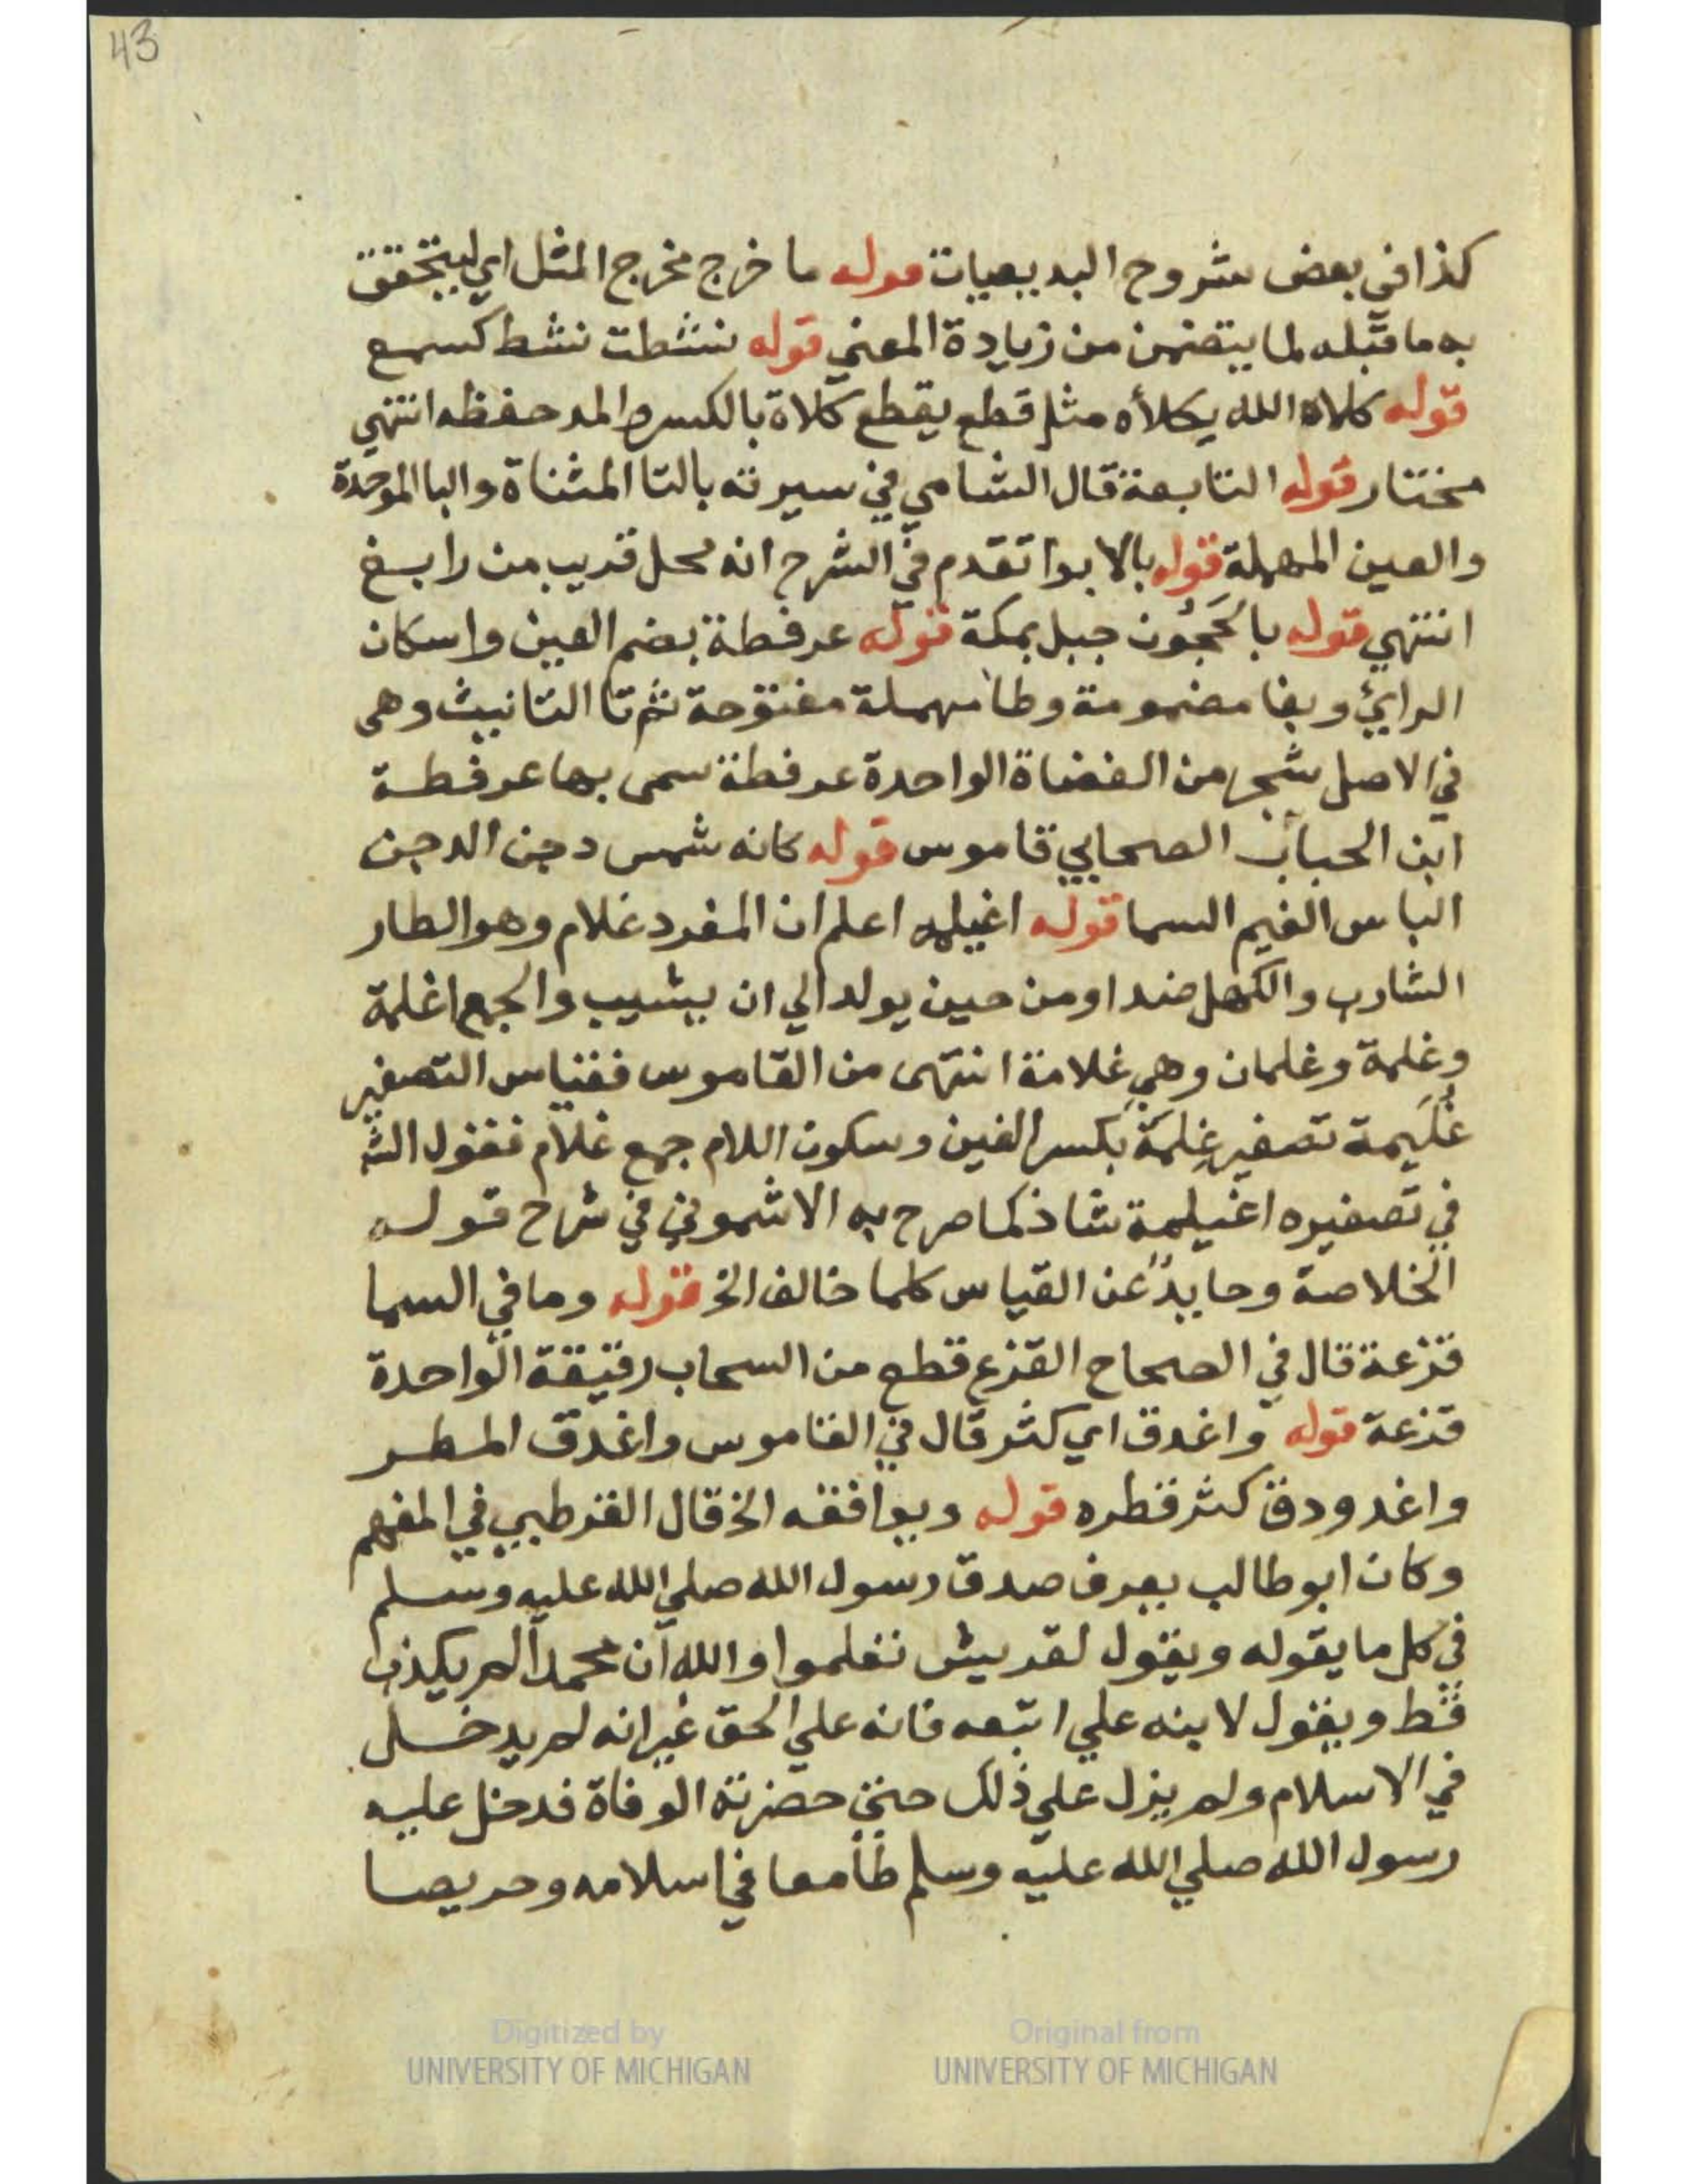 43
كذا في بعض شروح البديعيات قوله ما خرج مخرج المثل اي ليتحقق
به ما قبله لما يتضمن من زيادة المعني قوله نشطت نشط كسمع
قوله كلاه الله يكلأه مثل قطع يقطع كلاة بالكسر والمد حفظه انتهي
مختار قوله التابعة قال الشامي في سيرته بالتا المثناة والبا الموحدة
والعين المهملة قوله بالابوا تقدم في الشرح انه محل قريب من رابغ
انتهي قوله بالحَجُون جبل بمكة قوله عرفطة بضم العين واسكان
الراي وبفا مضمومة وطا مهملة مفتوحة ثم تا التانيث وهي
في الاصل شجر من الغضاة الواحدة عرفطة سمى بها عرفطة
ابن الحباب الصحابي قاموس قوله كانه شمس دجن الدجن
الباس الغيم السما قوله اغيلمه اعلم ان المفرد غلام وهو الطار
الشارب والكهل ضد او من حين يولد الي ان يشيب والجمع اغلمة
وغلمة وغلمان وهي غلامة انتهى من القاموس فقياس التصغير
غُلَيمة تصغير غِلمَة بكسر الغين وسكون اللام جمع غلام فقول الشـ
في تصغيره اغيلمة شاذ كما صرح به الاشموني في شرح قوله
الخلاصة وحايدٌ عن القياس كلما خالف الخ قوله وما في السما
قزعة قال في الصحاح القزع قطع من السحاب رقيقة الواحدة
قزعة قوله واغدق اي كثر قال في القاموس واغدق المطر
واغدودق كثر قطره قوله ويوافقه الخ قال القرطبي في المفهم
وكان ابو طالب يعرف صدق رسول الله صلي الله عليه وسلم
في كل ما يقوله ويقول لقريش تعلموا والله ان محمدا لم يكذب
قط ويقول لابنه علي اتبعه فانه علي الحق غير انه لم يدخل
في الاسلام ولم يزل علي ذلك حتي حضرته الوفاة فدخل عليه
رسول الله صلي الله عليه وسلم طامعا في اسلامه وحريصا
Digitized by
UNIVERSITY OF MICHIGAN
Original from
UNIVERSITY OF MICHIGAN